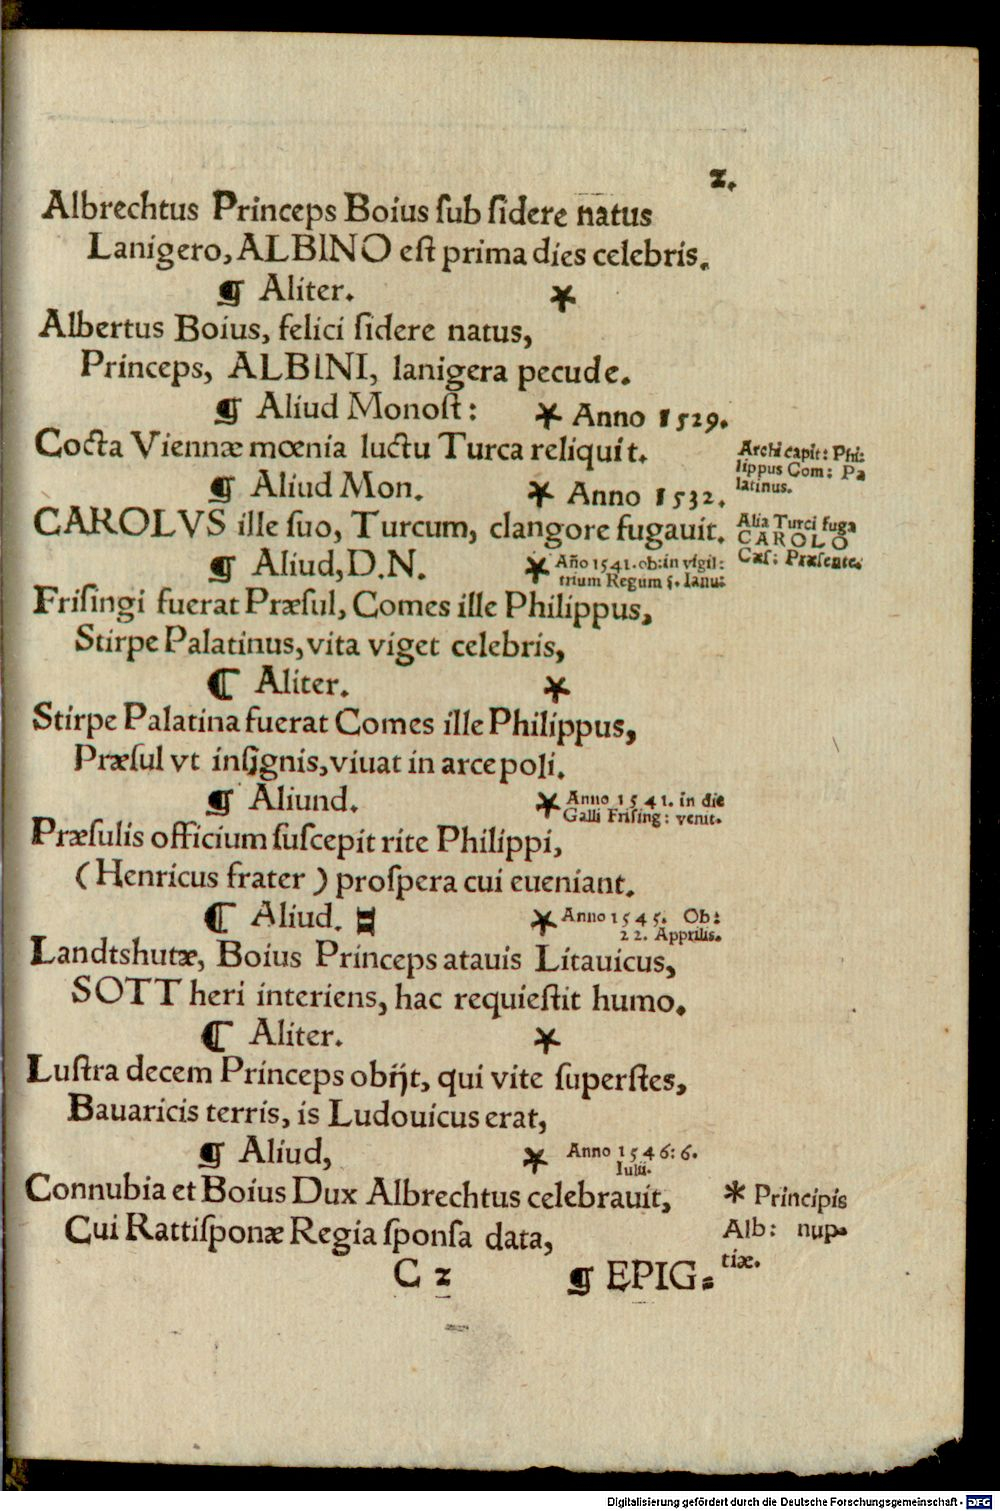 2.
Albrechtus Princeps Boius ſub ſidere natus
Lanigero, ALBINO eſt prima dies celebris.
¶ Aliter. *
Albertus Boius, felici ſidere natus,
Princeps, ALBINI, lanigera pecude.
¶ Aliud Monoſt: * Anno 1529.
Cocta Viennæ mœnia luctu Turca reliquit.
Archi capit: Phi:
lippus Com: Pa
latinus.
¶ Aliud Mon. * Anno 1532.
CAROLVS ille ſuo, Turcum, clangore fugauit.
Alia Turci fuga
CAROLO
Cæſ: Præſente.
¶ Aliud, D.N. * Año 1541. ob: in vigil:
trium Regum 5. Ianu:
Friſingi fuerat Præſul, Comes ille Philippus,
Stirpe Palatinus, vita viget celebris,
¶ Aliter. *
Stirpe Palatina fuerat Comes ille Philippus,
Præſul vt inſignis, viuat in arce poli.
¶ Aliund. * Anno 1541. in die
Galli Friſing: venit.
Præſulis officium ſuſcepit rite Philippi,
(Henricus frater) proſpera cui eueniant.
¶ Aliud. * Anno 1545. Ob:
22. Apprilis.
Landtshutæ, Boius Princeps atauis Litauicus,
SOTT heri interiens, hac requieſtit humo.
¶ Aliter. *
Luſtra decem Princeps obijt, qui vite ſuperſtes,
Bauaricis terris, is Ludouicus erat,
¶ Aliud, * Anno 1546: 6.
Iulii.
Connubia et Boius Dux Albrechtus celebrauit,
Cui Rattiſponæ Regia ſponſa data,
* Principis
Alb: nup-
tiæ.
C 2 ¶ EPIG=
Digitalisierung gefördert durch die Deutsche Forschungsgemeinschaft - DFG